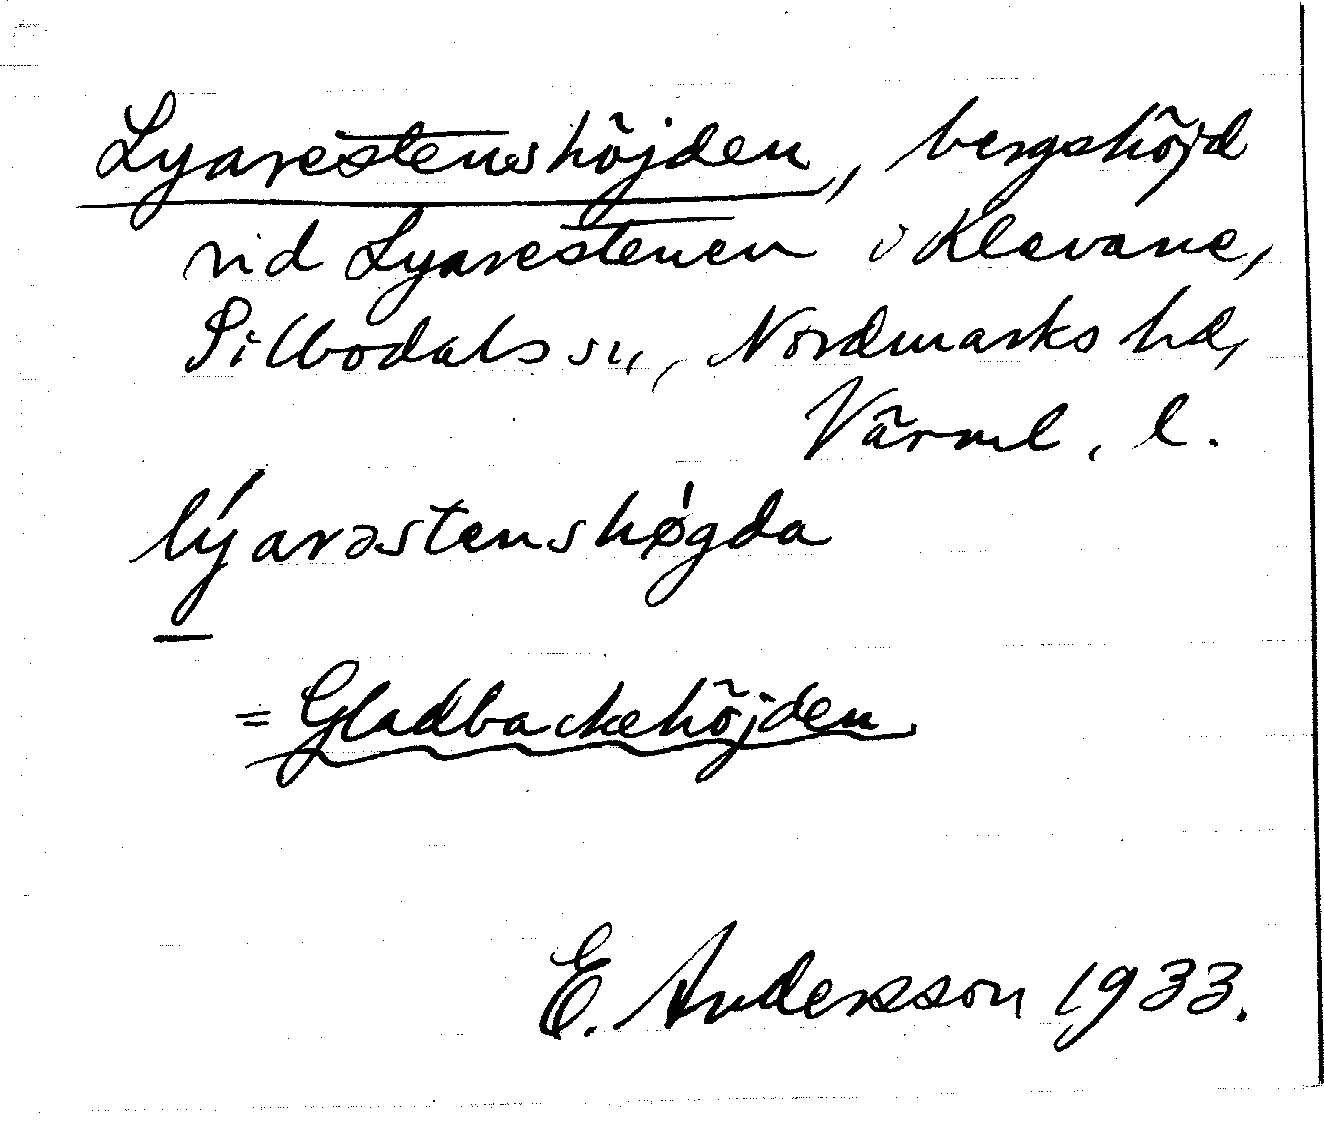 Lyarestenshöjden, bergshöjd
vid Lyarestenen i Klevane,
Silbodals sn, Nordmarks hd,
Värml. l.
lýarəstenshø̍gda
= Gladbackehöjden
E. Andersson 1933.